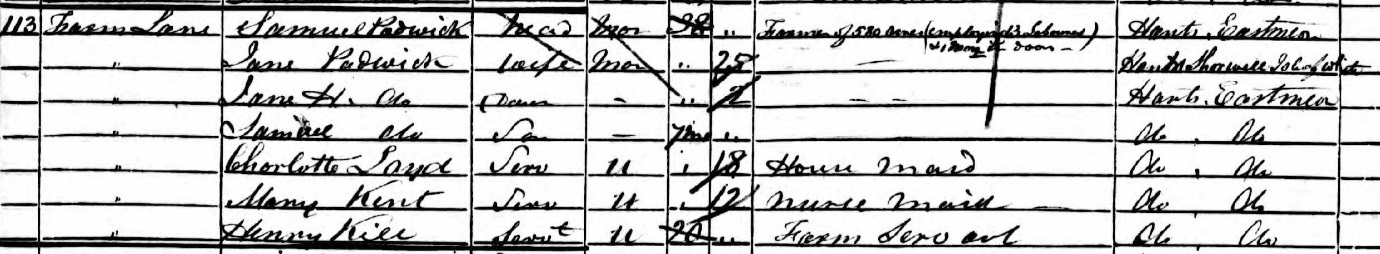 113 Farm Lane Samuel Padwick Head Mar 38 " Farmer of 580 acres (employing Labourers)
" Jane Padwick Wife Mar " 25 — Hants Shorwell Isle of Wight
" Jane H. Do Daur — " 2 — — Hants. Eastmeon
" Samuel do Son — 7mo " do. do
" Charlotte Land Serv U " 18 House Maid do. do
" Mary Kent Serv U " 12 Nurse Maid — do. do
" Henry Kill Servt U 20 " Farm Servant do do